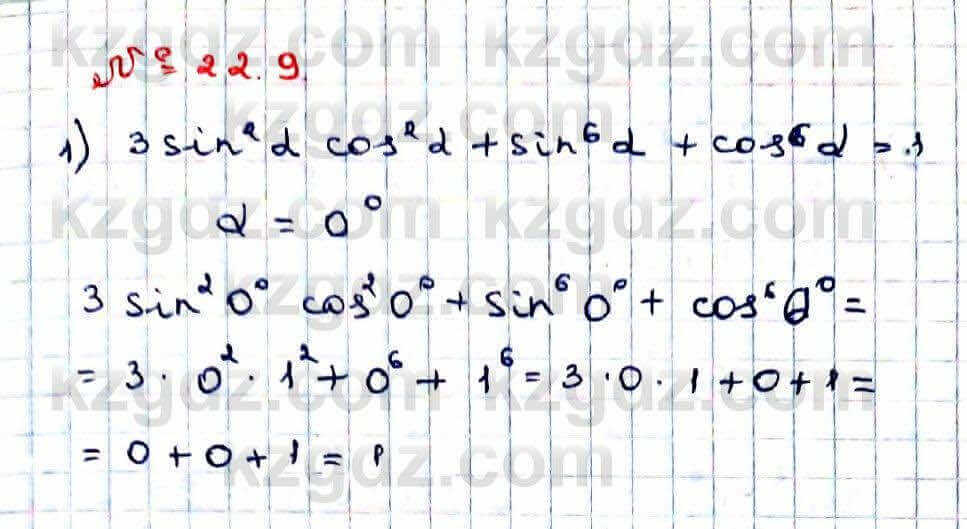 № 22.9.
1) 3 sin² α cos² α + sin⁶ α + cos⁶ α = 1
α = 0°
3 sin² 0° cos² 0° + sin⁶ 0° + cos⁶ 0° =
= 3 · 0² · 1² + 0⁶ + 1⁶ = 3 · 0 · 1 + 0 + 1 =
= 0 + 0 + 1 = 1
kzgdz.com kzgdz.com
kzgdz.com
kzgdz.com kzgdz.com
kzgdz.com
kzgdz.com kzgdz.com
kzgdz.com